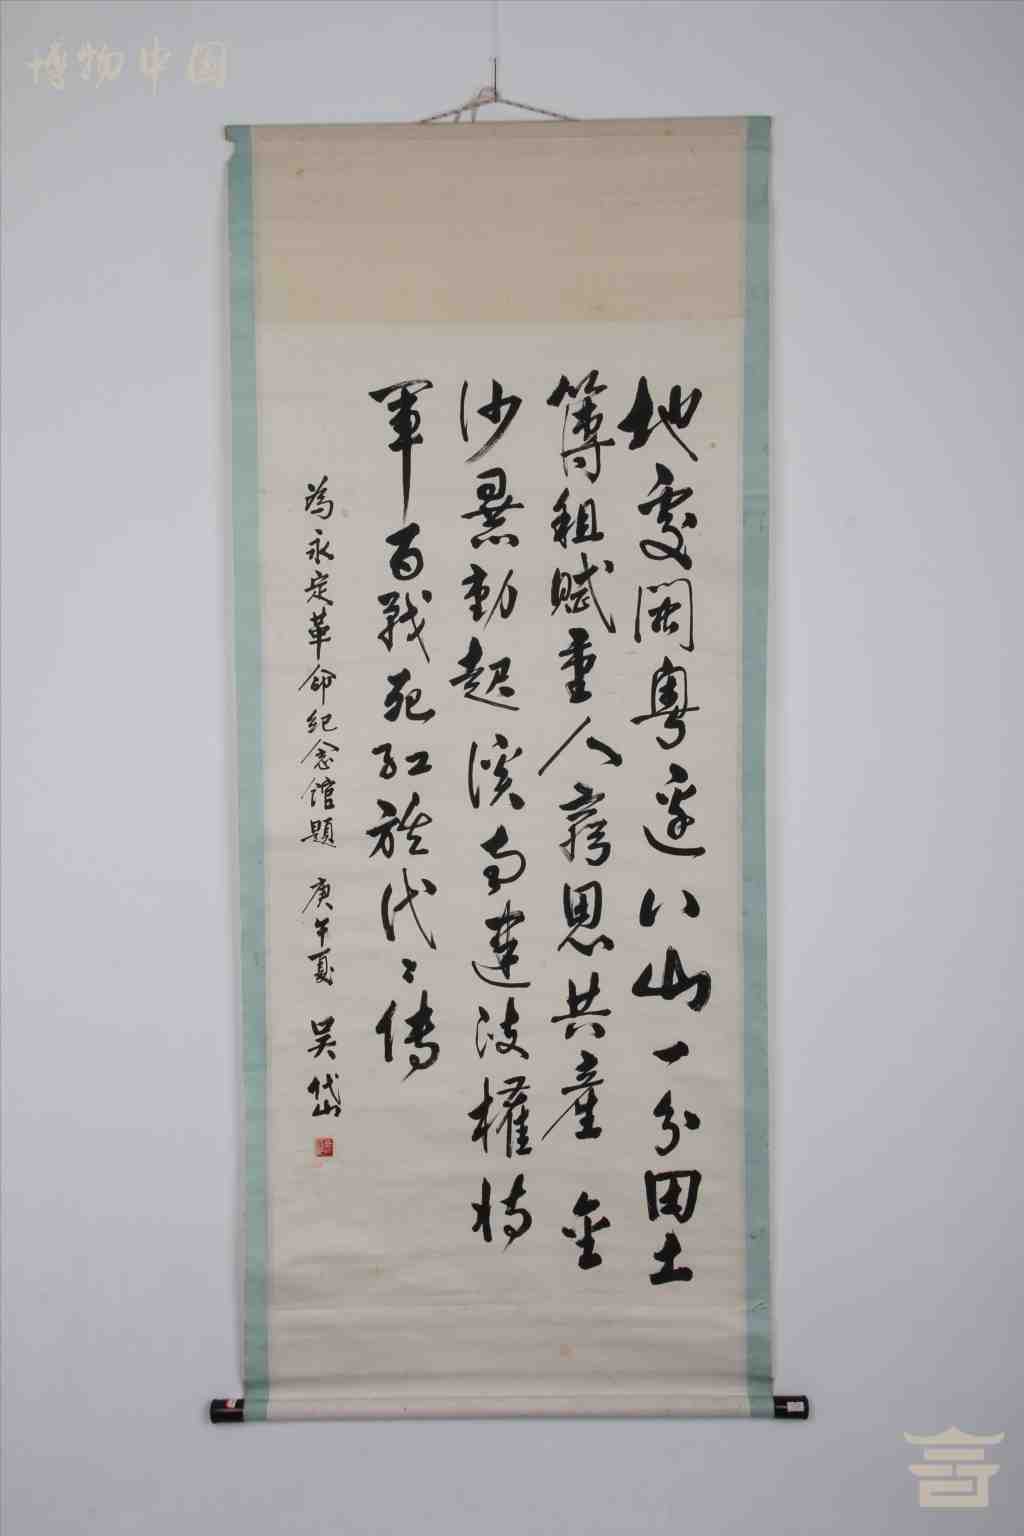 博物中国
地處閩粵邊八山一分田土
簿租賦重人窮思共產 金
沙暴動起溪南建政權将
軍百戰死紅旗代々傳
為永定革命紀念館題 庚午夏 吳岱